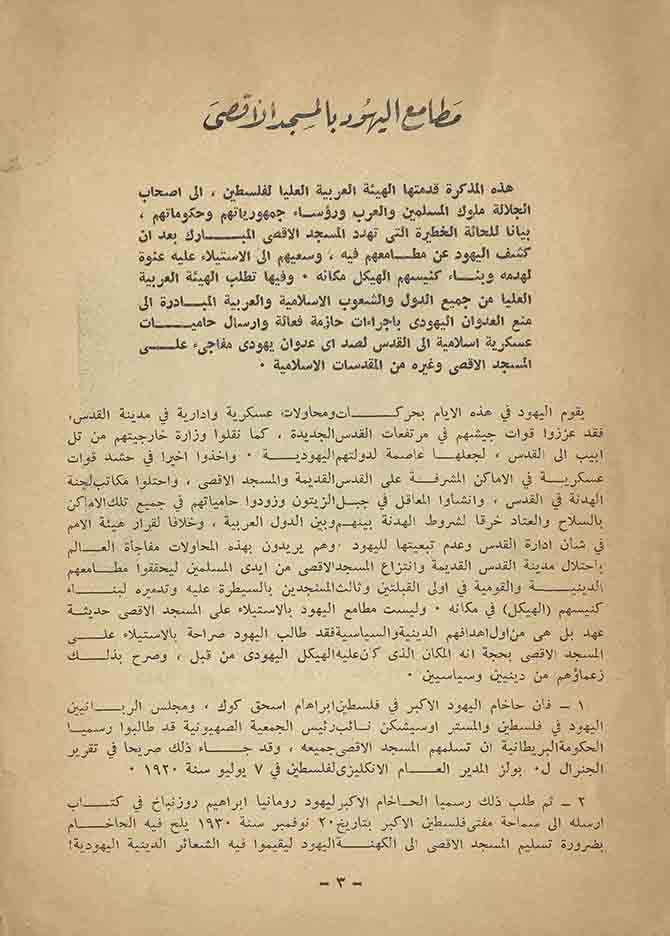 مطامع اليهود بالمسجد الأقصى
هذه المذكرة قدمتها الهيئة العربية العليا لفلسطين ، الى اصحاب
الجلالة ملوك المسلمين والعرب ورؤساء جمهورياتهم وحكوماتهم ،
بيانا للحالة الخطيرة التى تهدد المسجد الاقصى المبارك بعد ان
كشف اليهود عن مطامعهم فيه ، وسعيهم الى الاستيلاء عليه عنوة
لهدمه وبناء كنيسهم الهيكل مكانه ٠ وفيها تطلب الهيئة العربية
العليا من جميع الدول والشعوب الاسلامية والعربية المبادرة الى
منع العدوان اليهودى باجراءات حازمة فعالة وارسال حاميات
عسكرية اسلامية الى القدس لصد اى عدوان يهودى مفاجىء على
المسجد الاقصى وغيره من المقدسات الاسلامية ٠
يقوم اليهود في هذه الايام بحركات ومحاولات عسكرية وادارية في مدينة القدس،
فقد عززوا قوات جيشهم في مرتفعات القدس الجديدة ، كما نقلوا وزارة خارجيتهم من تل
ابيب الى القدس ، لجعلها عاصمة لدولتهم اليهودية ٠ واخذوا اخيرا في حشد قوات
عسكرية في الاماكن المشرفة على القدس القديمة والمسجد الاقصى ، واحتلوا مكاتب لجنة
الهدنة في القدس ، وانشاوا المعاقل في جبل الزيتون وزودوا حامياتهم في جميع تلك الاماكن
بالسلاح والعتاد خرقا لشروط الهدنة بينهم وبين الدول العربية ، وخلافا لقرار هيئة الامم
في شأن ادارة القدس وعدم تبعيتها لليهود ٠ وهم يريدون بهذه المحاولات مفاجأة العالم
باحتلال مدينة القدس القديمة وانتزاع المسجد الاقصى من ايدى المسلمين ليحققوا مطامعهم
الدينية والقومية في اولى القبلتين وثالث المسجدين بالسيطرة عليه وتدميره لبناء
كنيسهم (الهيكل) في مكانه ٠ وليست مطامع اليهود بالاستيلاء على المسجد الاقصى حديثة
عهد بل هى من اول اهدافهم الدينية والسياسية فقد طالب اليهود صراحة بالاستيلاء على
المسجد الاقصى بحجة انه المكان الذى كان عليه الهيكل اليهودى من قبل ، وصرح بذلك
زعماؤهم من دينيين وسياسيين ٠
١ – فان حاخام اليهود الاكبر في فلسطين ابراهام اسحق كوك ، ومجلس الربانيين
اليهود في فلسطين والمستر اوسيشكن نائب رئيس الجمعية الصهيونية قد طالبوا رسميا
الحكومة البريطانية ان تسلمهم المسجد الاقصى جميعه ، وقد جاء ذلك صريحا في تقرير
الجنرال ل٠ بولز المدير العام الانكليزى لفلسطين في ٧ يوليو سنة ١٩٢٠ ٠
٢ – ثم طلب ذلك رسميا الحاخام الاكبر ليهود رومانيا ابراهيم روزنباخ في كتاب
ارسله الى سماحة مفتى فلسطين الاكبر بتاريخ ٢٠ نوفمبر سنة ١٩٣٠ يلح فيه الحاخام
بضرورة تسليم المسجد الاقصى الى الكهنة اليهود ليقيموا فيه الشعائر الدينية اليهودية!
– ٣ –